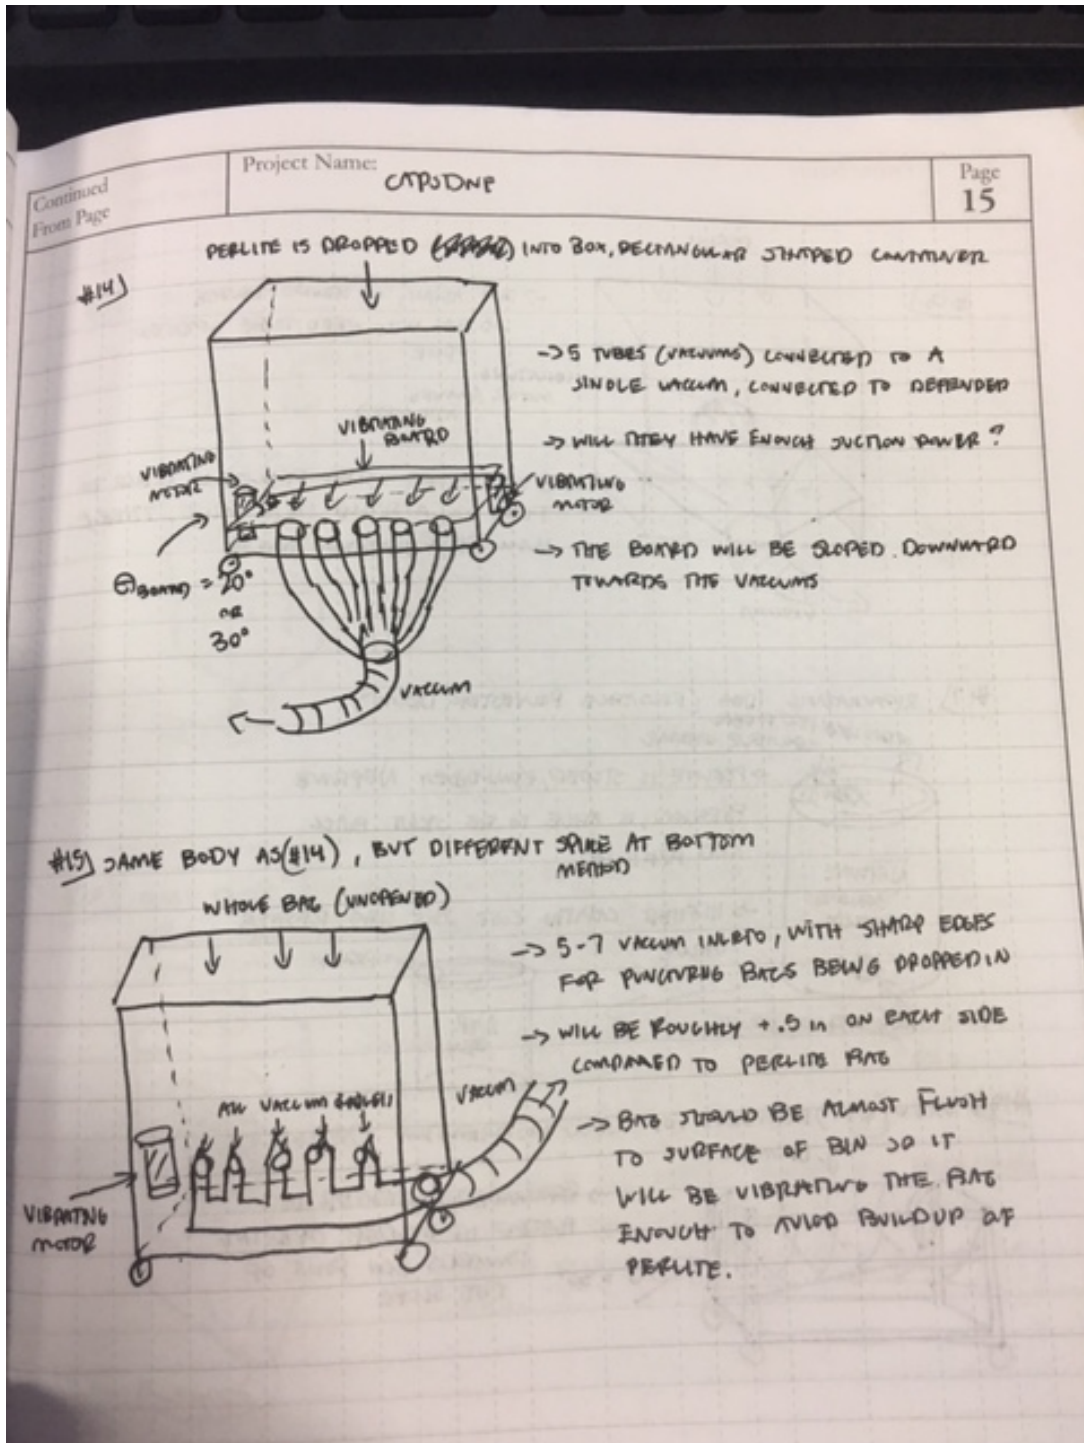 Continued
From Page
Project Name:
CAPSTONE
Page
15
PERLITE IS DROPPED INTO BOX, RECTANGULAR SHAPED CONTAINER
#14)
→ 5 TUBES (VACUUMS) CONNECTED TO A
SINGLE VACCUM, CONNECTED TO
VIBRATING
BOARD
→ WILL THEY HAVE ENOUGH SUCTION POWER?
VIBRATING
MOTOR
VIBRATING
MOTOR
→ THE BOARD WILL BE SLOPED DOWNWARD
TOWARDS THE VACCUMS
ΘBOARD = 20°
OR
30°
VACCUM
#15) SAME BODY AS (#14), BUT DIFFERENT SPIKE AT BOTTOM
METHOD
WHOLE BAG (UNOPENED)
→ 5-7 VACCUM INLETS, WITH SHARP EDGES
FOR PUNCTURING BAGS BEING DROPPED IN
→ WILL BE ROUGHLY + .5 in ON EACH SIDE
COMPARED TO PERLITE BAG
VACCUM
ALL VACCUM
→ BAG SHOULD BE ALMOST FLUSH
TO SURFACE OF BIN SO IT
WILL BE VIBRATING THE BAG
ENOUGH TO AVIOD BUILDUP OF
PERLITE.
VIBRATING
MOTOR